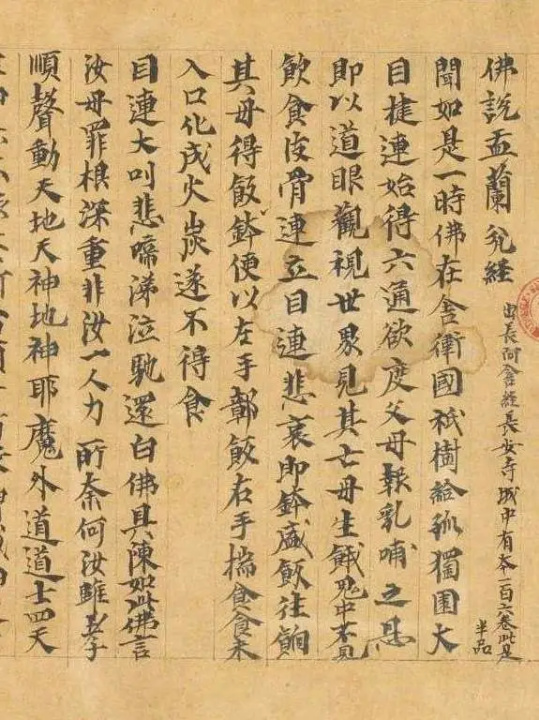 佛說盂蘭瓫經
出長阿含經長安寺城中有本一百六卷此是
半品
聞如是一時佛在舎衛國祇樹給孤獨園大
目揵連始得六通欲度父母報乳哺之恩
即以道眼觀視世界見其亡母生餓鬼中不見
飲食皮骨連立目連悲哀即鉢盛飯往餉
其母得飯鉢便以左手鄣飯右手摶食食未
入口化成火炭遂不得食
目連大叫悲啼涕泣馳還白佛具陳如此佛言
汝母罪根深重非汝一人力所奈何汝雖孝
順聲動天地天神地神耶魔外道道士四天